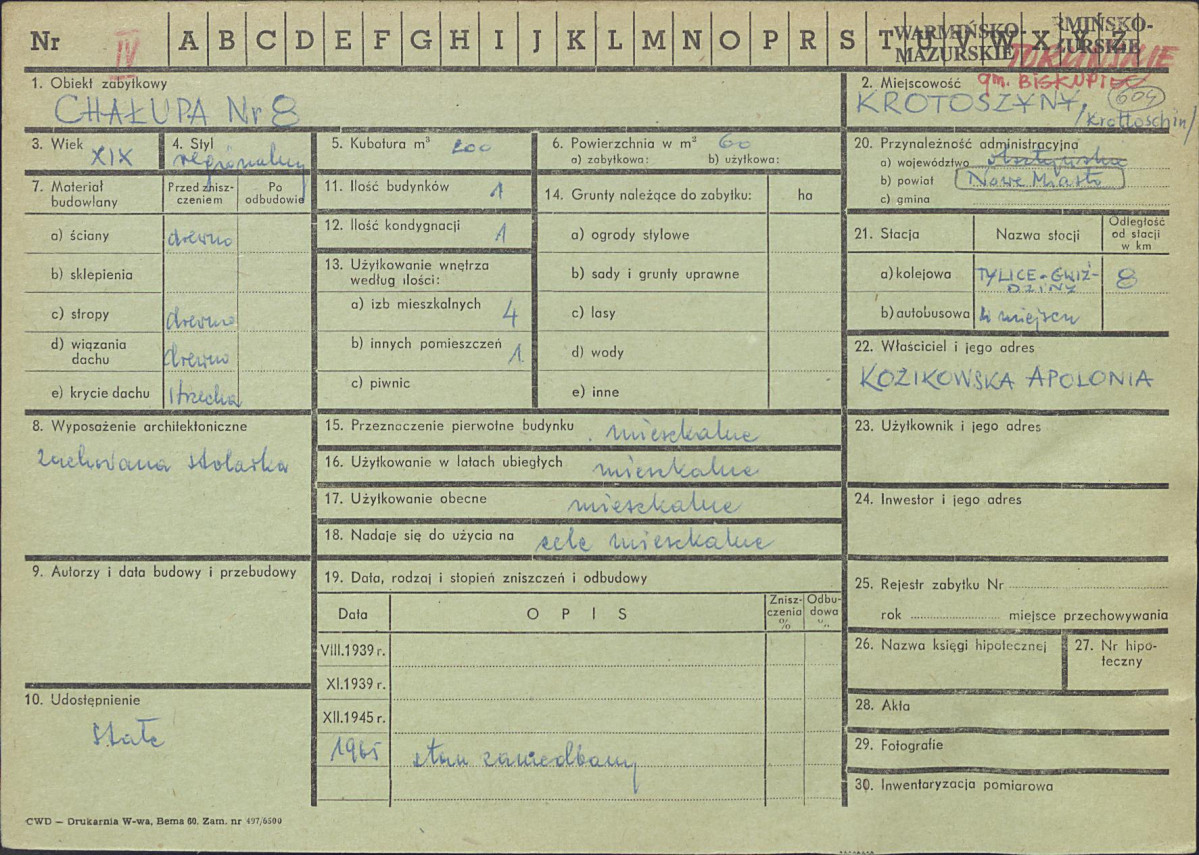 Nr IV A B C D E F G H I J K L M N O P R S T U V W X Y Z
WARMIŃSKO-
MAZURSKIE
RMIŃSKO-
ZURSKIE
TORUŃSKIE
1. Obiekt zabytkowy
CHAŁUPA Nr 8
2. Miejscowość gm. BISKUPIEC
KROTOSZYNY, /Krottoschin/
604
3. Wiek XIX
4. Styl regionalny
5. Kubatura m³ 200
6. Powierzchnia w m² 60
a) zabytkowa: b) użytkowa:
20. Przynależność administracyjna
a) województwo olsztyńskie
b) powiat Nowe Miasto
c) gmina
7. Materiał
budowlany
Przed znisz-
czeniem
Po
odbudowie
a) ściany drewno
b) sklepienia
c) stropy drewno
d) wiązania
dachu drewno
e) krycie dachu strzecha
11. Ilość budynków 1
12. Ilość kondygnacji 1
13. Użytkowanie wnętrza
według ilości:
a) izb mieszkalnych 4
b) innych pomieszczeń 1
c) piwnic
14. Grunty należące do zabytku: ha
a) ogrody stylowe
b) sady i grunty uprawne
c) lasy
d) wody
e) inne
21. Stacja Nazwa stacji
Odległość
od stacji
w km
a) kolejowa TYLICE-GWIŹ-
DZINY 8
b) autobusowa w miejscu
22. Właściciel i jego adres
KOZIKOWSKA APOLONIA
8. Wyposażenie architektoniczne
zachowana stolarka
15. Przeznaczenie pierwotne budynku mieszkalne
16. Użytkowanie w latach ubiegłych mieszkalne
17. Użytkowanie obecne mieszkalne
18. Nadaje się do użycia na cele mieszkalne
23. Użytkownik i jego adres
24. Inwestor i jego adres
9. Autorzy i data budowy i przebudowy
19. Data, rodzaj i stopień zniszczeń i odbudowy
Data O P I S
Znisz-
czenia
%
Odbu-
dowa
%
VIII.1939 r.
XI.1939 r.
XII.1945 r.
1965 stan zaniedbany
25. Rejestr zabytku Nr
rok miejsce przechowywania
26. Nazwa księgi hipotecznej
27. Nr hipo-
teczny
10. Udostępnienie
stałe
28. Akta
29. Fotografie
30. Inwentaryzacja pomiarowa
CWD — Drukarnia W-wa, Bema 60. Zam. nr 497/6500